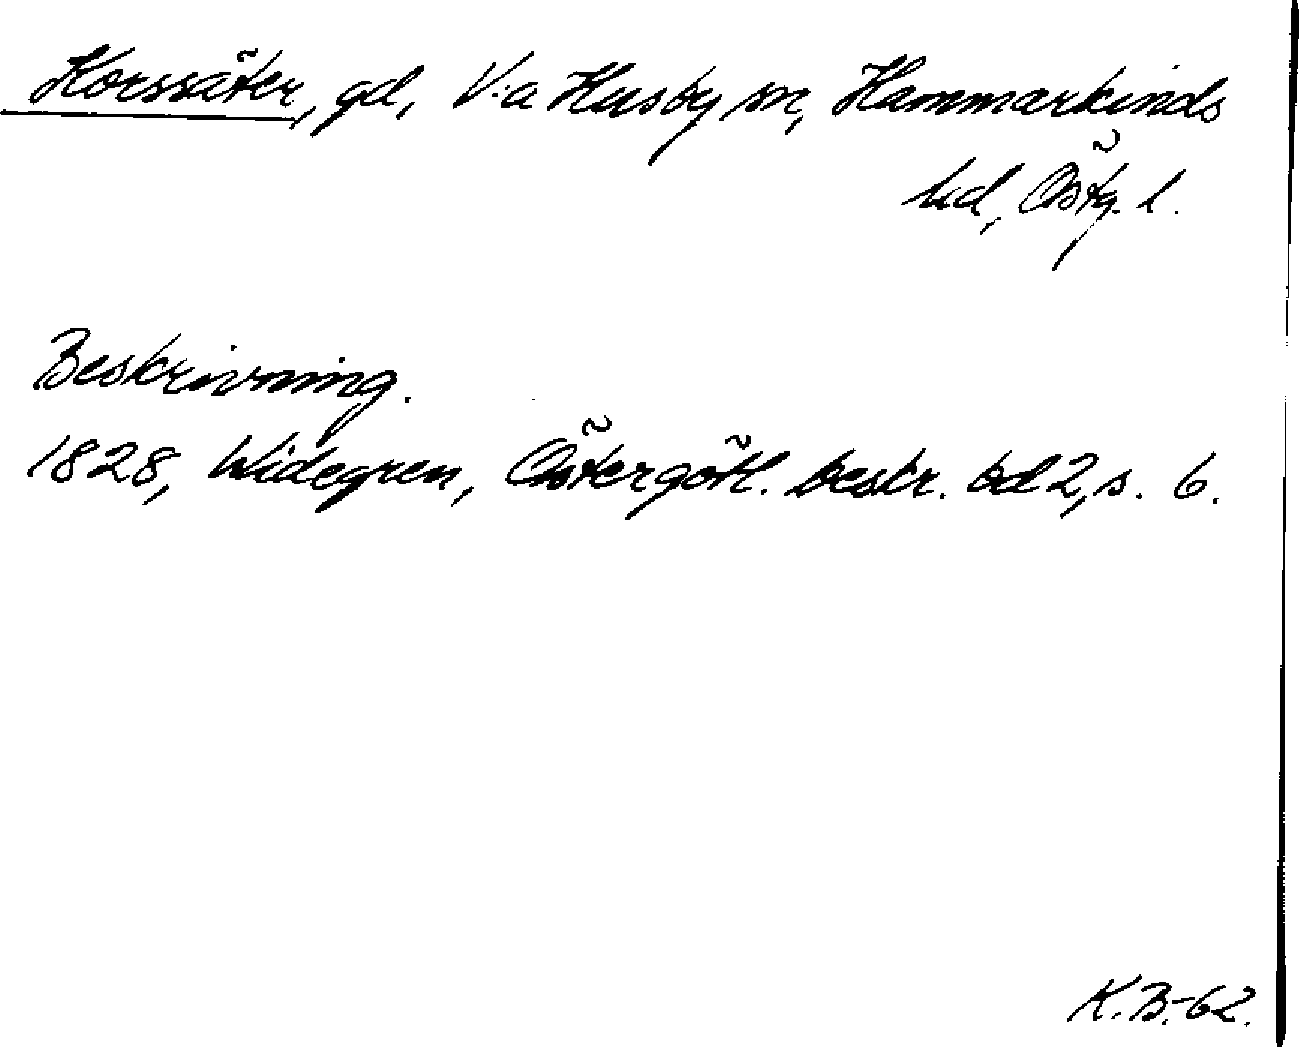 Korssäter, gd, V:a Husby sn, Hammarkinds
hd, Östg. l.
Beskrivning.
1828, Widegren, Östergötl. beskr. bd 2, s. 6.
K.B.-62.